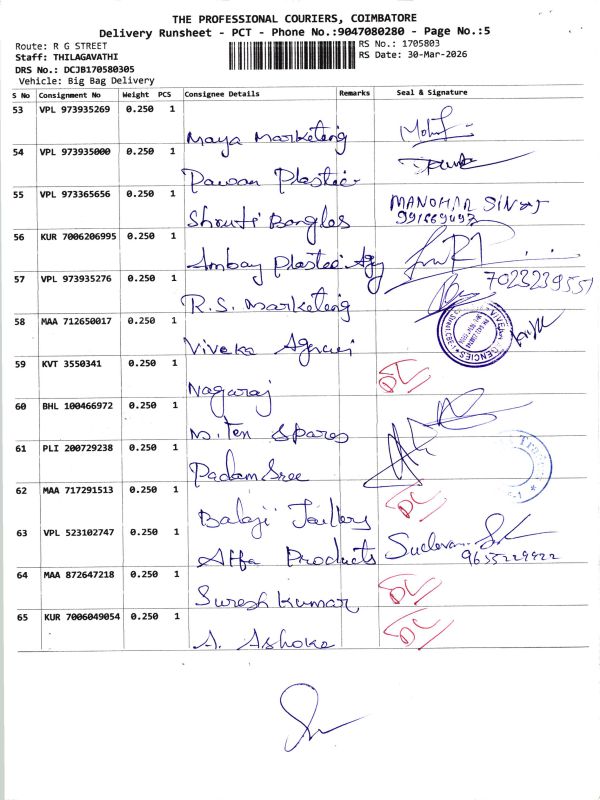 THE PROFESSIONAL COURIERS, COIMBATORE
Delivery Runsheet - PCT - Phone No.:9047080280 - Page No.:5
Route: R G STREET
RS No.: 1705803
Staff: THILAGAVATHI
RS Date: 30-Mar-2026
DRS No.: DCJB170580305
Vehicle: Big Bag Delivery
S No Consignment No Weight PCS Consignee Details Remarks Seal & Signature
53 VPL 973935269 0.250 1
Maya Marketing
54 VPL 973935000 0.250 1
Pawan Plastic
55 VPL 973365656 0.250 1
MANOHAR SINGH
Shruti Bangles
56 KUR 7006206995 0.250 1
Ambay Plastic Agy
57 VPL 973935276 0.250 1
7023239551
R.S. Marketing
58 MAA 712650017 0.250 1
Viveka Agencies
59 KVT 3550341 0.250 1
DC
Nagaraj
60 BHL 100466972 0.250 1
N. Ten Spares
61 PLI 200729238 0.250 1
Padam Sree
62 MAA 717291513 0.250 1
DC
Balaji Tailors
63 VPL 523102747 0.250 1
Affa Products
9655229922
64 MAA 872647218 0.250 1
DC
Suresh Kumar
65 KUR 7006049054 0.250 1
DC
A. Ashoke